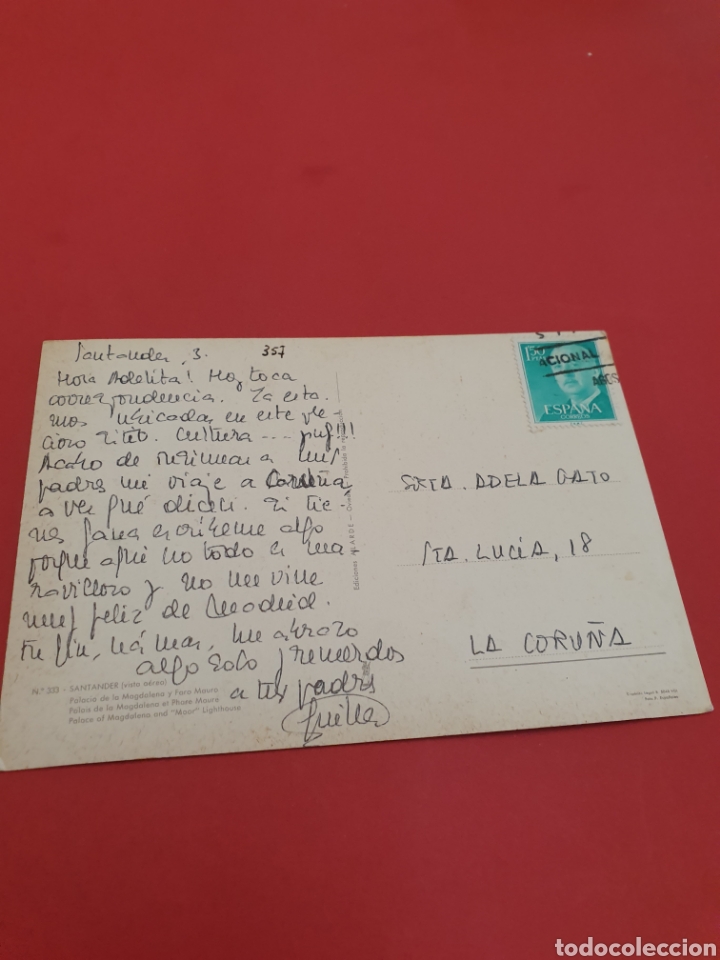 Santander, 3.
357
Hola Adelita! Hoy toca
correspondencia. Ya esta
mos ubicadas en este pre
cioso sitio. Cultura --- puf!!!
Acabo de
padres mi viaje a Coruña
a ver qué dicen. Si tie-
nes gana escríbeme algo
porque aquí no todo es ma
ravilloso y no me vine
muy feliz de Madrid.
En fin, ná mas, un abrazo
algo soso y recuerdos
a tus padres
1'50
ACIONAL
AGOS
ESPAÑA
CORREOS
SRTA. ADELA GATO
STA. LUCÍA, 18
LA CORUÑA
Nº 333 - SANTANDER (vista aérea)
Palacio de la Magdalena y Faro Mouro
Palais de la Magdalena et Phare Mouro
Palace of Magdalena and "Moor" Lighthouse
Ediciones ARDE -
todocoleccion